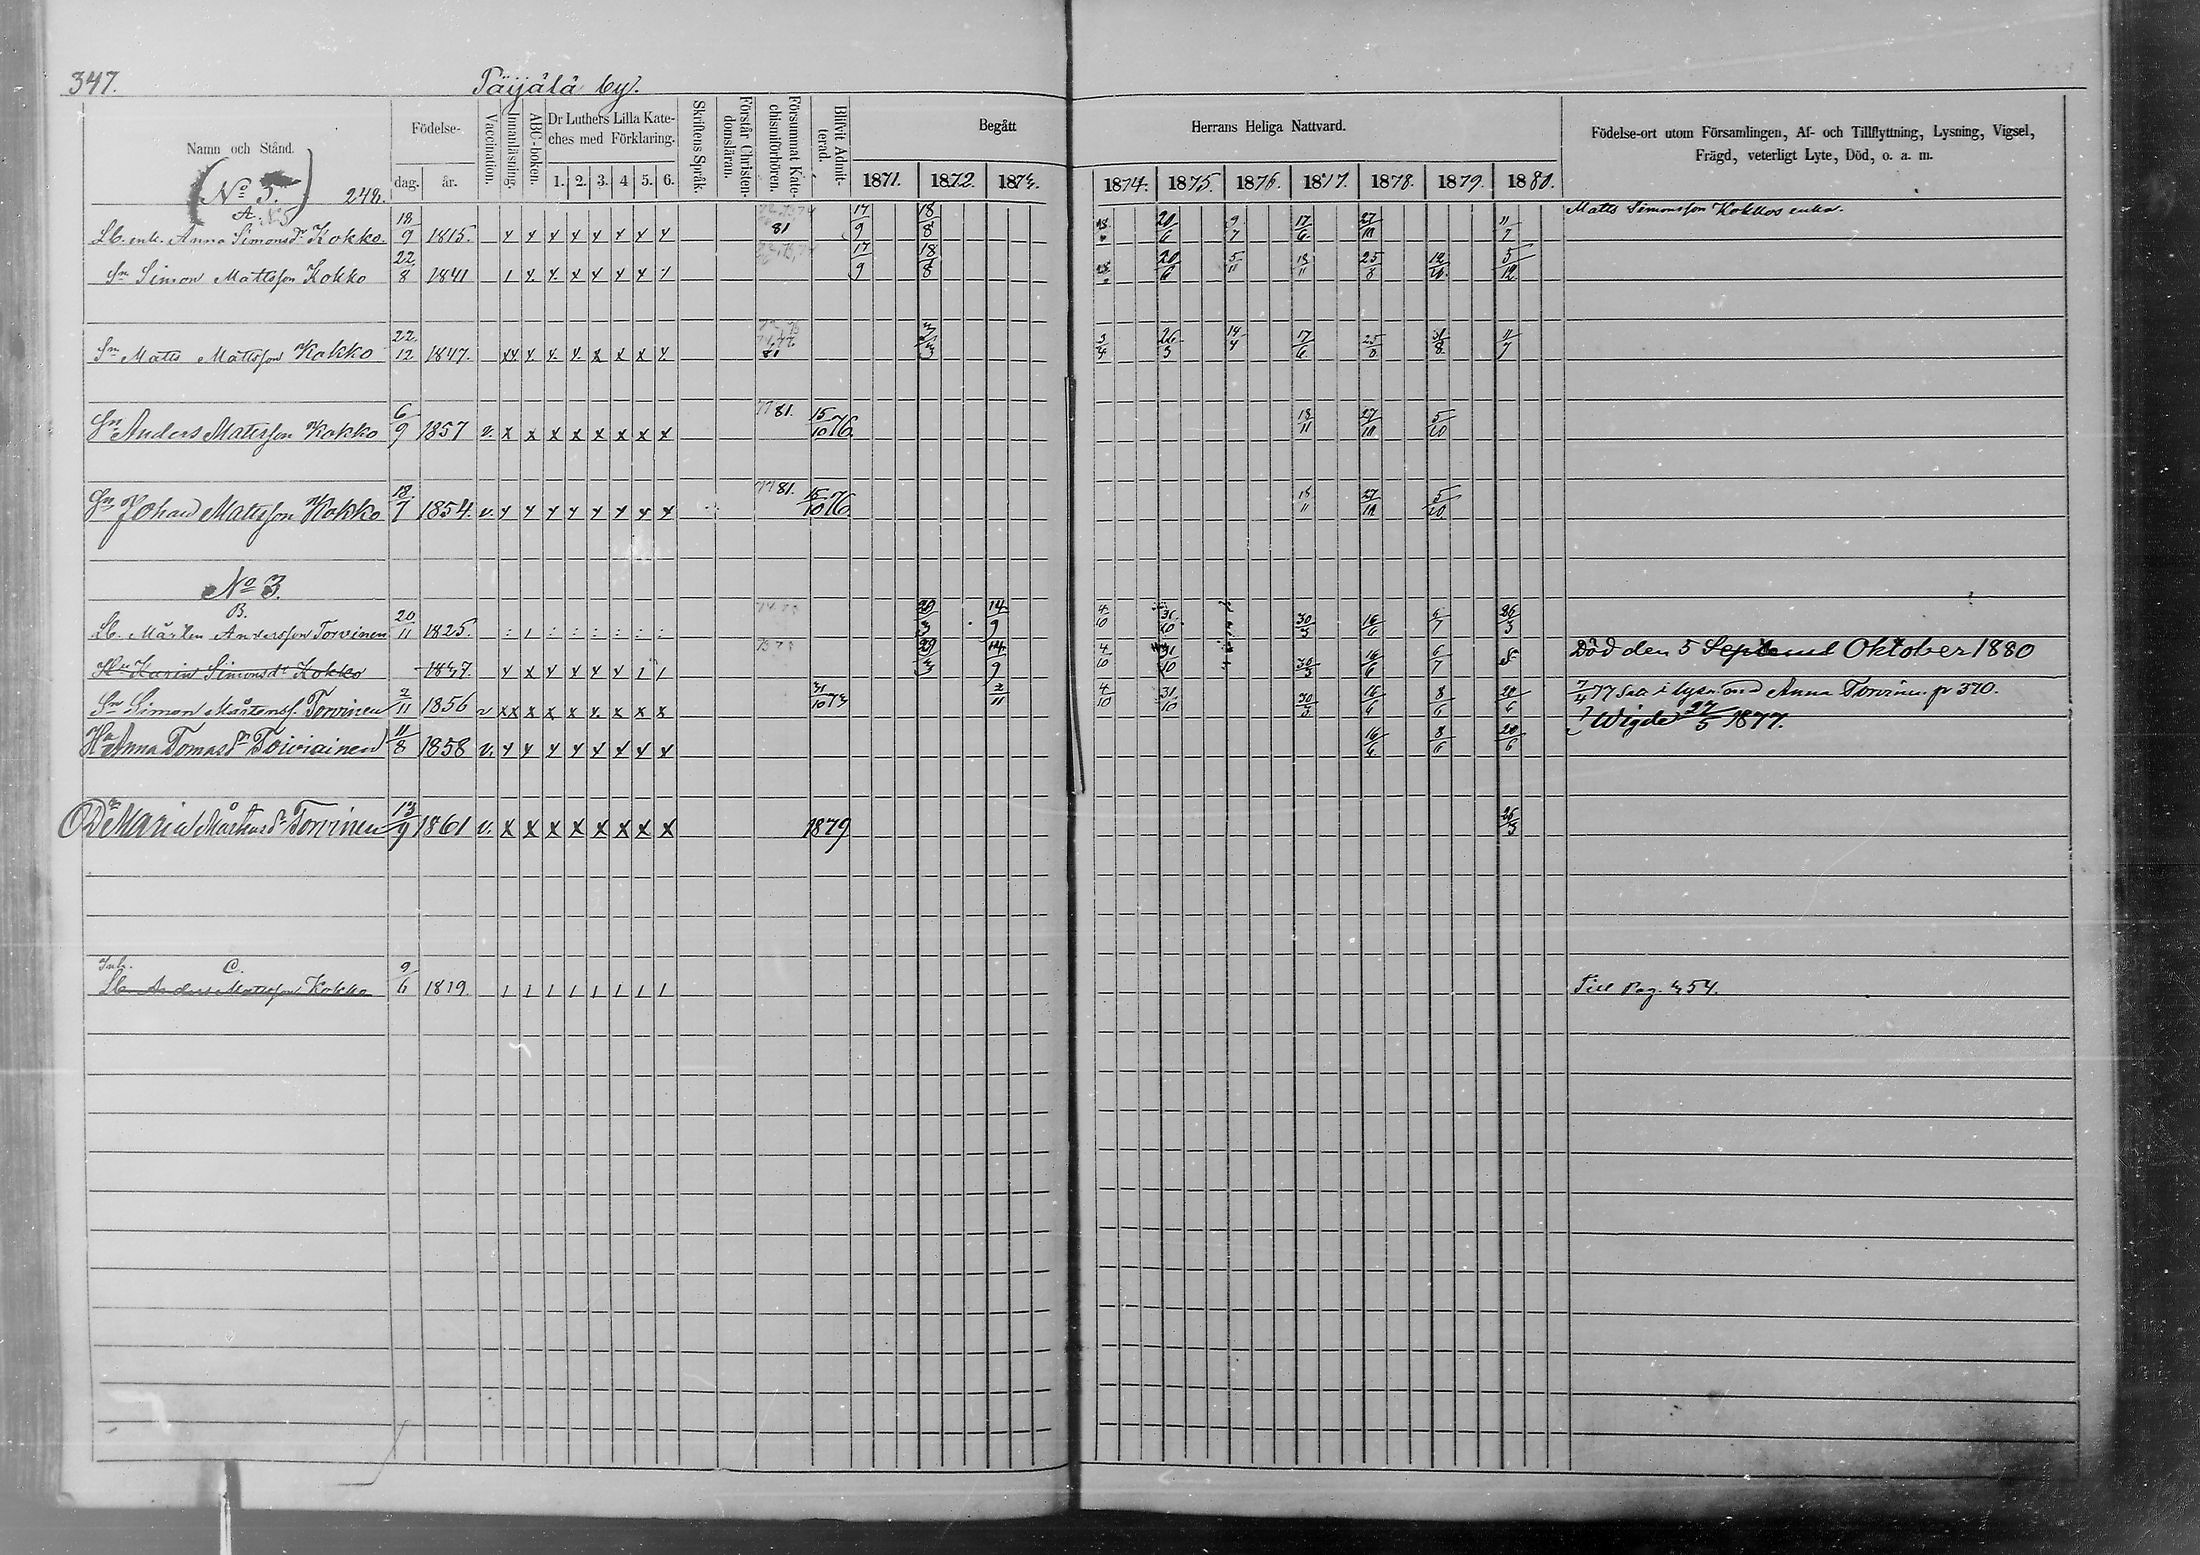 347.
Päijälä by.
Namn och Stånd.
Födelse-
dag. år.
Vaccination.
Innanläsning.
ABC-boken.
Dr Luthers Lilla Kate-
ches med Förklaring.
1. 2. 3. 4 5. 6.
Skriftens Språk.
Förstår Christen-
domsläran.
Försummat Kate-
chismiförhören.
Blifvit Admit-
terad.
Begått
1871. 1872. 1873.
Herrans Heliga Nattvard.
1874. 1875. 1876. 1877. 1878. 1879. 1880.
Födelse-ort utom Församlingen, Af- och Tillflyttning, Lysning, Vigsel,
Frägd, veterligt Lyte, Död, o. a. m.
(No 5.) 248.
A.
Matts Simonsson Kokkos enka.
Lb. enk. Anna Simonsdr Kokko. 18/9 1815. 81 17/9 18/8 20/6 9/7 17/6 27/10 11/7
Sn Simon Mattsson Kokko 22/8 1841 17/9 18/8 20/6 5/11 18/11 25/8 12/10 5/12
Sn Matts Mattsson Kokko 22/12 1847. 81 3/4 26/3 14/4 17/6 25/8 11/7
Sn Anders Mattsson Kokko 6/9 1857 v. x x x x x x x x 77 81. 15/10 76. 18/11 27/10 5/10
Sn Johan Mattsson Kokko 18/7 1854. v. 77 81. 15/10 76 18/11 27/10 5/10
No 3.
B.
Lb. Mårten Andersson Torvinen 20/11 1825. 14/9 4/10 31/10 30/3 16/6 6/7 26/3
Hu Karin Simonsdr Kokko 14/9 4/10 31/10 30/3 16/6 6/7 Död den 5 Oktober 1880
Sn Simon Mårtenss. Torvinen 2/11 1856 v xx x x x x x x x 31/10 73 2/11 4/10 31/10 30/3 16/6 8/6 20/6 7/4 77 i lysn. med Anna Torvinen p 370.
Wigde 27/5 1877.
Hu Anna Tomasdr Toiviainen 11/8 1858 v. 16/6 8/6 20/6
Dr Maria Mårtensdr Torvinen 13/9 1861 v. x x x x x x x x 1879 26/3
Inh. C.
Lb Anders Mattsson Kokko 9/6 1819. Till Pag. 454.